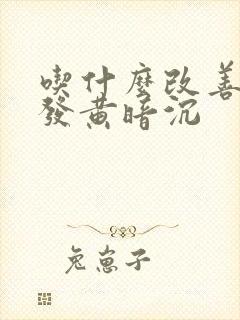 喫什麼改善
發黄暗沉
兔崽子